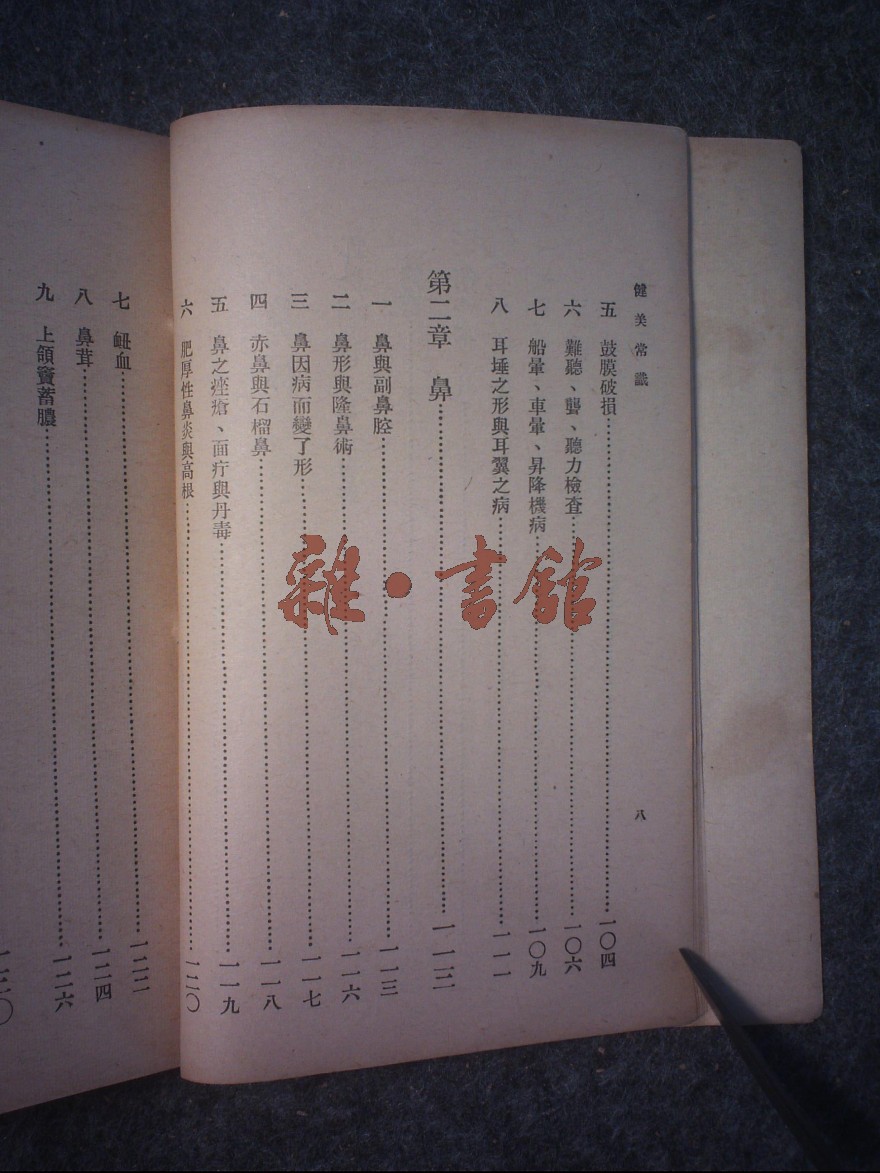 健美常識
八
五 鼓膜破損……一〇四
六 難聽、聾、聽力檢查……一〇六
七 船暈、車暈、昇降機病……一〇九
八 耳埵之形與耳翼之病……一一一
第二章 鼻……一一三
一 鼻與副鼻腔……一一三
二 鼻形與隆鼻術……一一六
三 鼻因病而變了形……一一七
四 赤鼻與石榴鼻……一一八
五 鼻之痤瘡、面疔與丹毒……一一九
六 肥厚性鼻炎與高根……一二〇
七 衄血……一二二
八 鼻茸……一二四
九 上領竇蓄膿……一二六
雜·書館